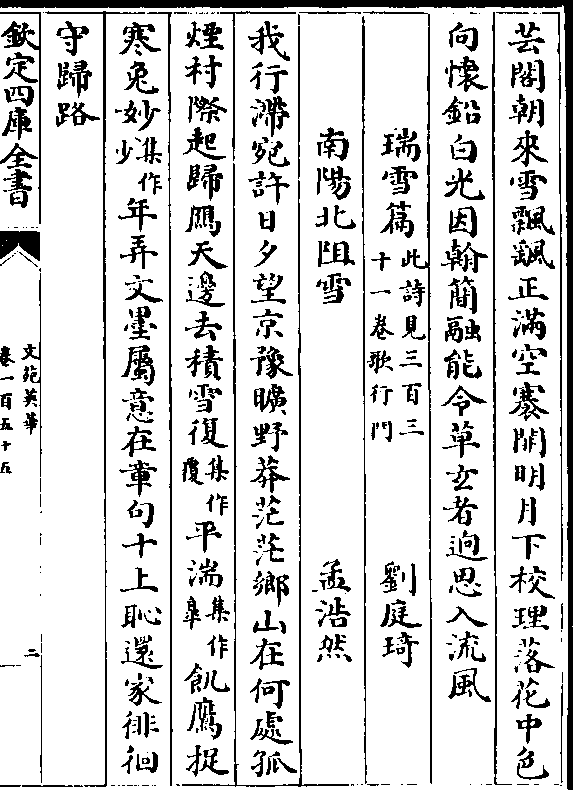 芸閣朝來雪飄飄正滿空褰開明月下校理落花中色
向懷鉛白光因翰簡融能令草玄者迥思入流風
瑞雪篇此詩見三百三十一卷歌行門 劉庭琦
南陽北阻雪 孟浩然
我行滯宛許日夕望京豫曠野莽茫茫鄉山在何處孤
煙村際起歸鴈天邊去積雪復集作覆平湍集作臯飢鷹捉
寒兔妙集作少年弄文墨屬意在章句十上恥還家徘徊
守歸路
欽定四庫全書
文苑英華
卷一百五十五
二